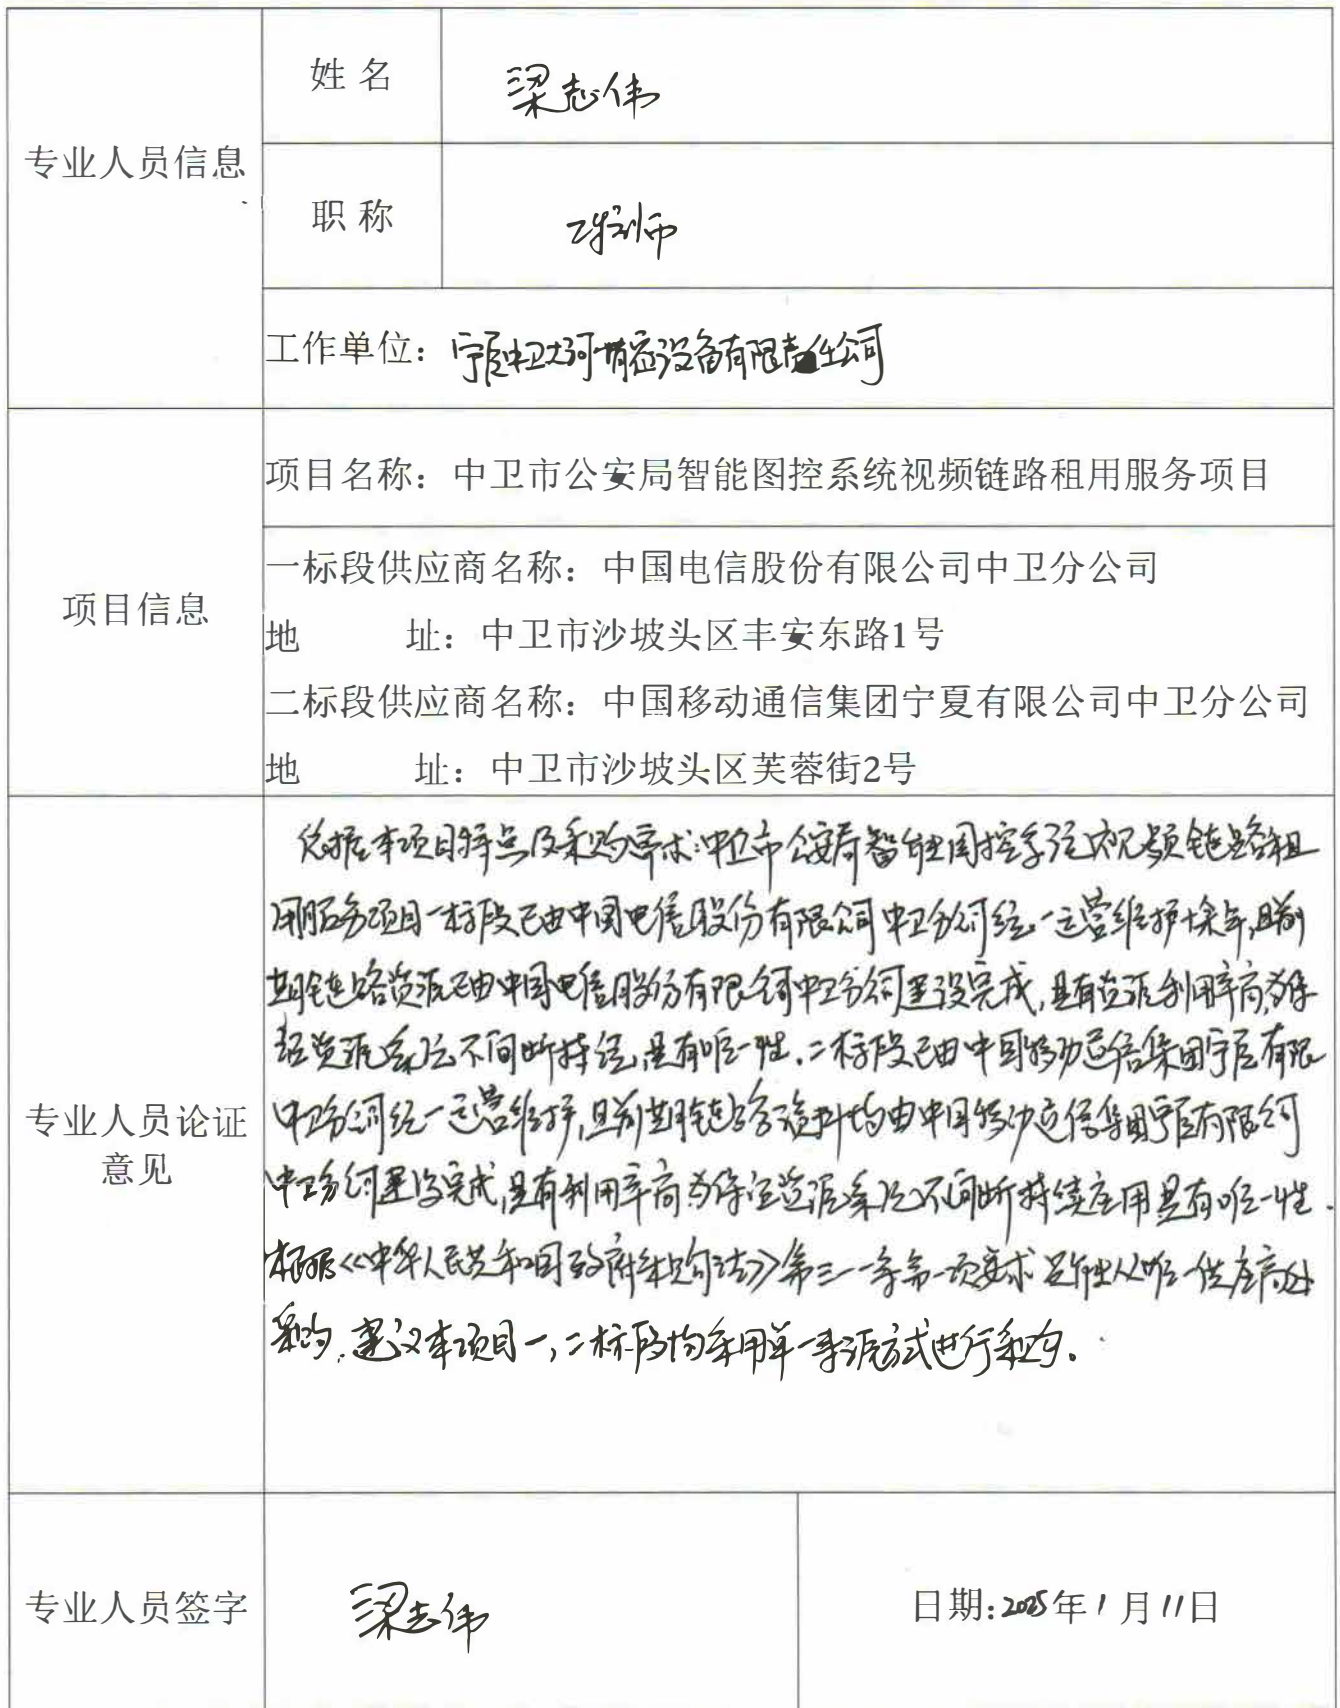 专业人员信息
姓 名
梁志伟
职 称
工程师
工作单位：宁夏中卫大河精密设备有限责任公司
项目信息
项目名称：中卫市公安局智能图控系统视频链路租用服务项目
一标段供应商名称：中国电信股份有限公司中卫分公司
地 址：中卫市沙坡头区丰安东路1号
二标段供应商名称：中国移动通信集团宁夏有限公司中卫分公司
地 址：中卫市沙坡头区芙蓉街2号
专业人员论证
意见
根据本项目特点及采购需求:中卫市公安局智能图控系统视频链路租
用服务项目一标段已由中国电信股份有限公司中卫分公司统一运营维护十余年,且前
期链路资源已由中国电信股份有限公司中卫分公司建设完成,具有资源利用率高,为保
证资源系统不间断持续,具有唯一性.二标段已由中国移动通信集团宁夏有限
中卫分公司统一运营维护,且前期链路资料均由中国移动通信集团宁夏有限公司
中卫分公司建设完成,具有利用率高为保证资源系统不间断持续应用具有唯一性.
根据《中华人民共和国政府采购法》第三一条第一项要求只能从唯一供应商处
采购.建议本项目一,二标段均采用单一来源方式进行采购.
专业人员签字
梁志伟
日期:2025年1月11日